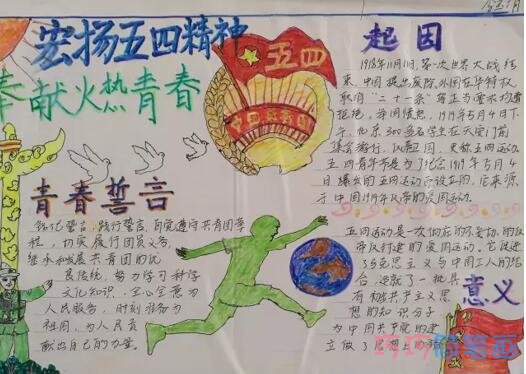 宏扬五四精神
奉献火热青春
五四
起因
1918年11月11日,第一次世界大战结
束,中国提出废除外国在华特权,
取消"二十一条"等正当要求均遭
拒绝,举国愤怒,1919年5月4日下
午,北京300多名学生在天安门前
集会游行,
五四青年节是为了纪念1919年5月4
日爆发的五四运动而设立的,它来源
于中国1919年反帝的爱国运动。
青春誓言
践行誓言,自觉遵守共青团章
程,切实履行团员义务,
继承和发展共青团的优
良传统,努力学习科学
文化知识,全心全意为
人民服务,时刻准备为
祖国,为人民贡
献出自己的力量。
五四运动是一次彻底的不妥协的反
帝反封建的爱国运动。它促进
了马克思主义与中国工人的结
合,造就了一批具
有初共产主义思
想的知识分子
为中国共产党的建
立做了思想上的
意义